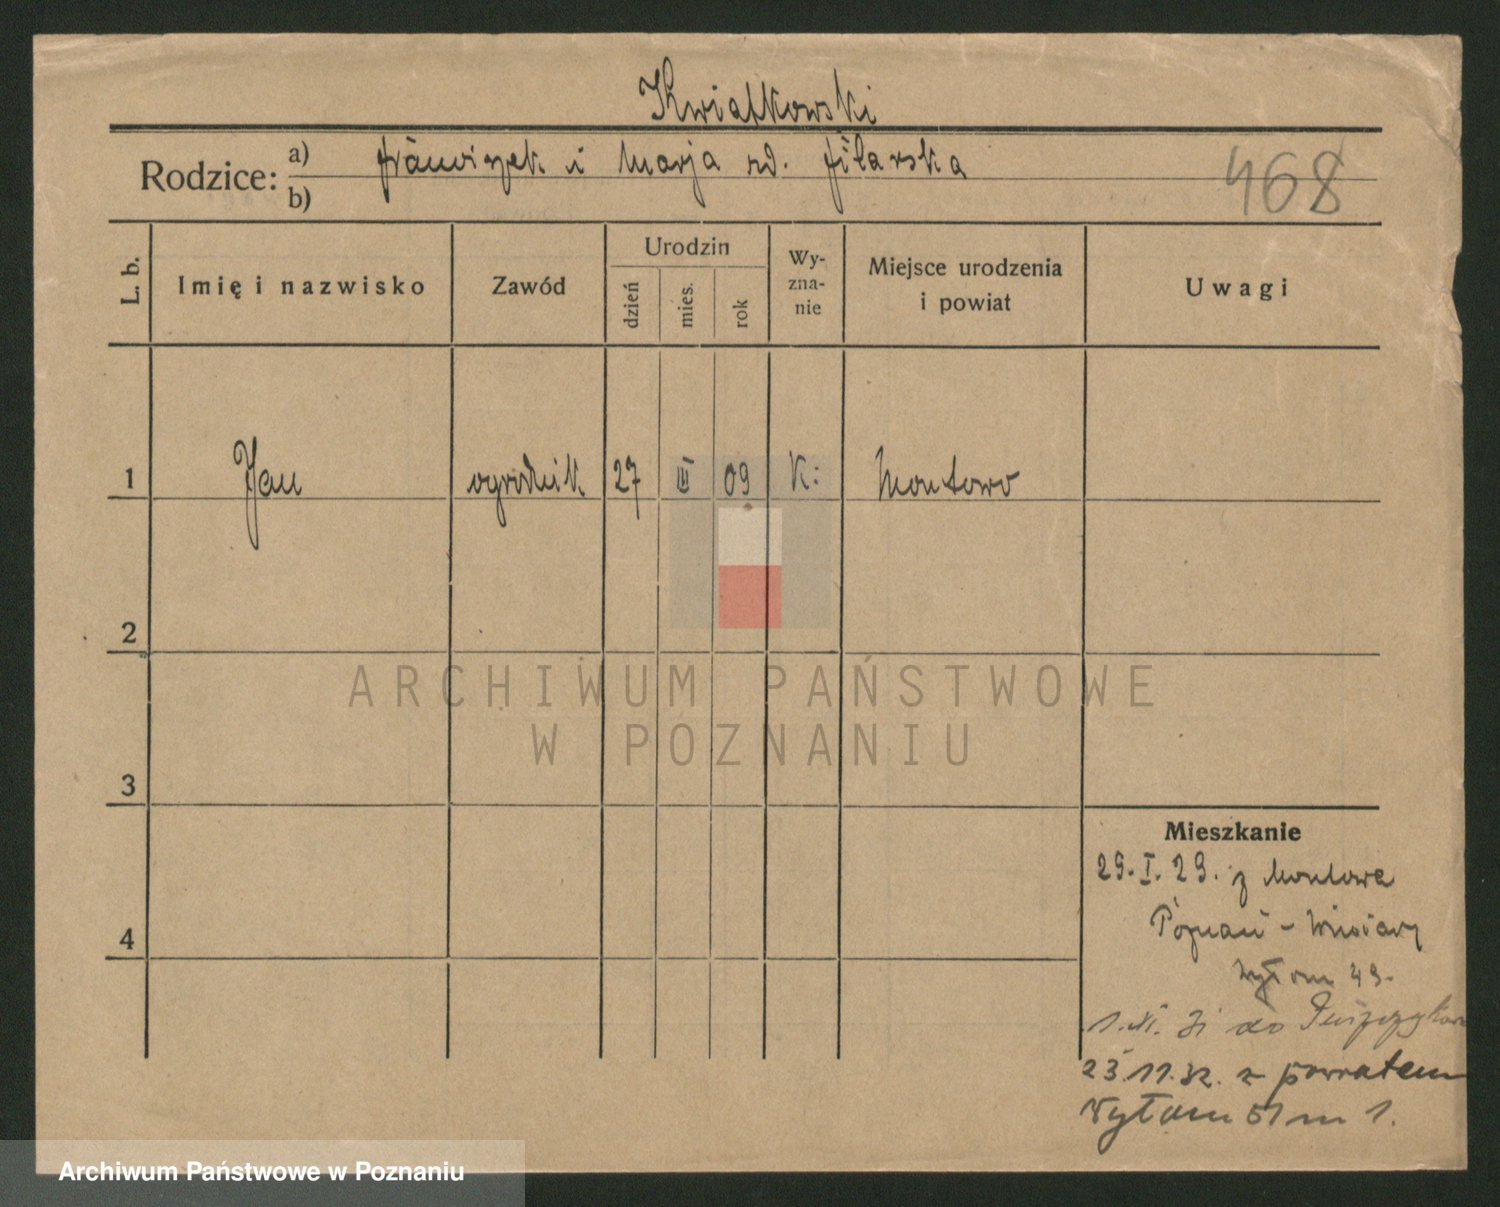 Kwiatkowski
Rodzice: a) Franciszek i Marja zd. Filarska
b)
468
L. b.
Imię i nazwisko
Zawód
Urodzin
dzień
mies.
rok
Wy-
zna-
nie
Miejsce urodzenia
i powiat
Uwagi
1 Jan ogrodnik 27 III 09 K: Montowo
2
3
4
ARCHIWUM PAŃSTWOWE
W POZNANIU
Mieszkanie
29. I. 29. z Montowa
Poznań - Winiary
Wyłom 49.
1. XI. 31 do
23.11.32. z powrotem
Wyłom 51 m 1.
Archiwum Państwowe w Poznaniu